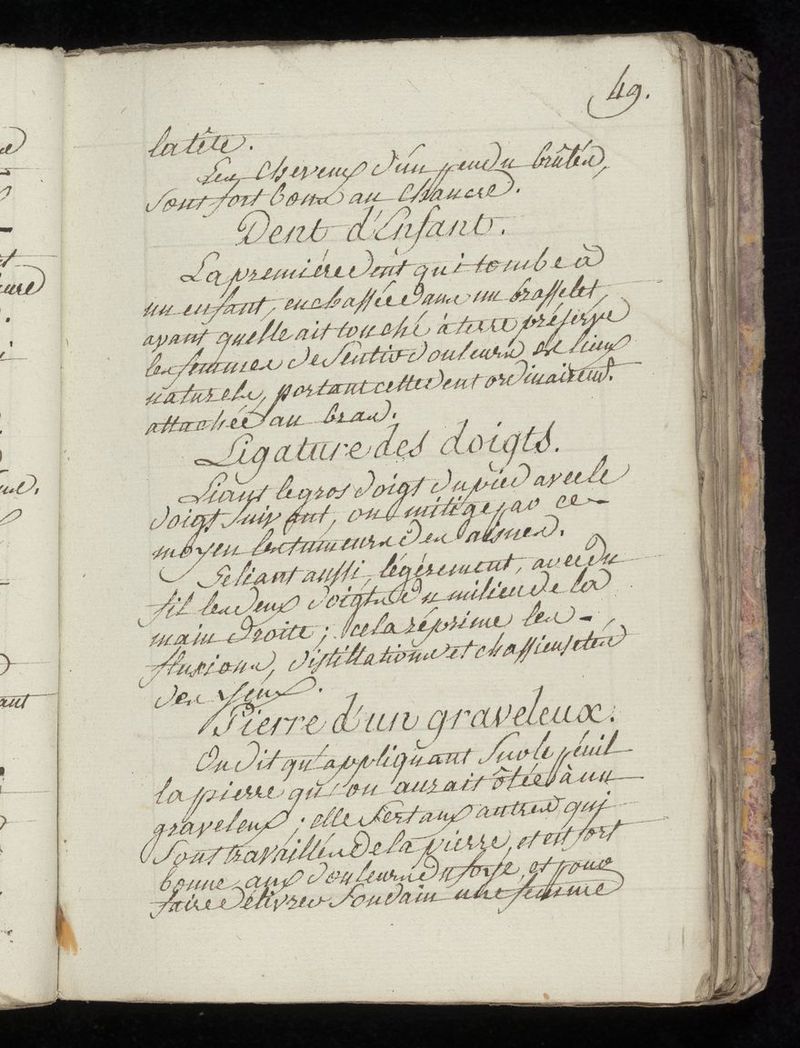 49.
la tête.
Les cheveux d'un pendu brûlés,
sont fort bons au chancre.
Dent d'Enfant.
La premiére dent qui tombe à
un enfant, enchassée dans un brasselet,
avant quelle ait touché à terre préserve
les femmes de sentir douleurs es lieux
naturels, portant cette dent ordinairemt.
attachée au bras.
Ligature des doigts.
Liant le gros doigt du pied avec le
doigt suivant, on mitige par ce
moyen les tumeurs des aisnes.
Se liant aussi, légérement, avec du
fil les deux doigts du milieu de la
main droite; cela réprime les
fluxions, distillations et chassieusetés
des yeux.
Pierre d'un graveleux.
On dit qu'appliquant sur le pénil
la pierre qu'on aurait ôtée à un
graveleux; elle sert aux autres qui
sont travaillés de la pierre, et est fort
bonne aux douleurs du foye, et pour
faire délivrer soudain une femme